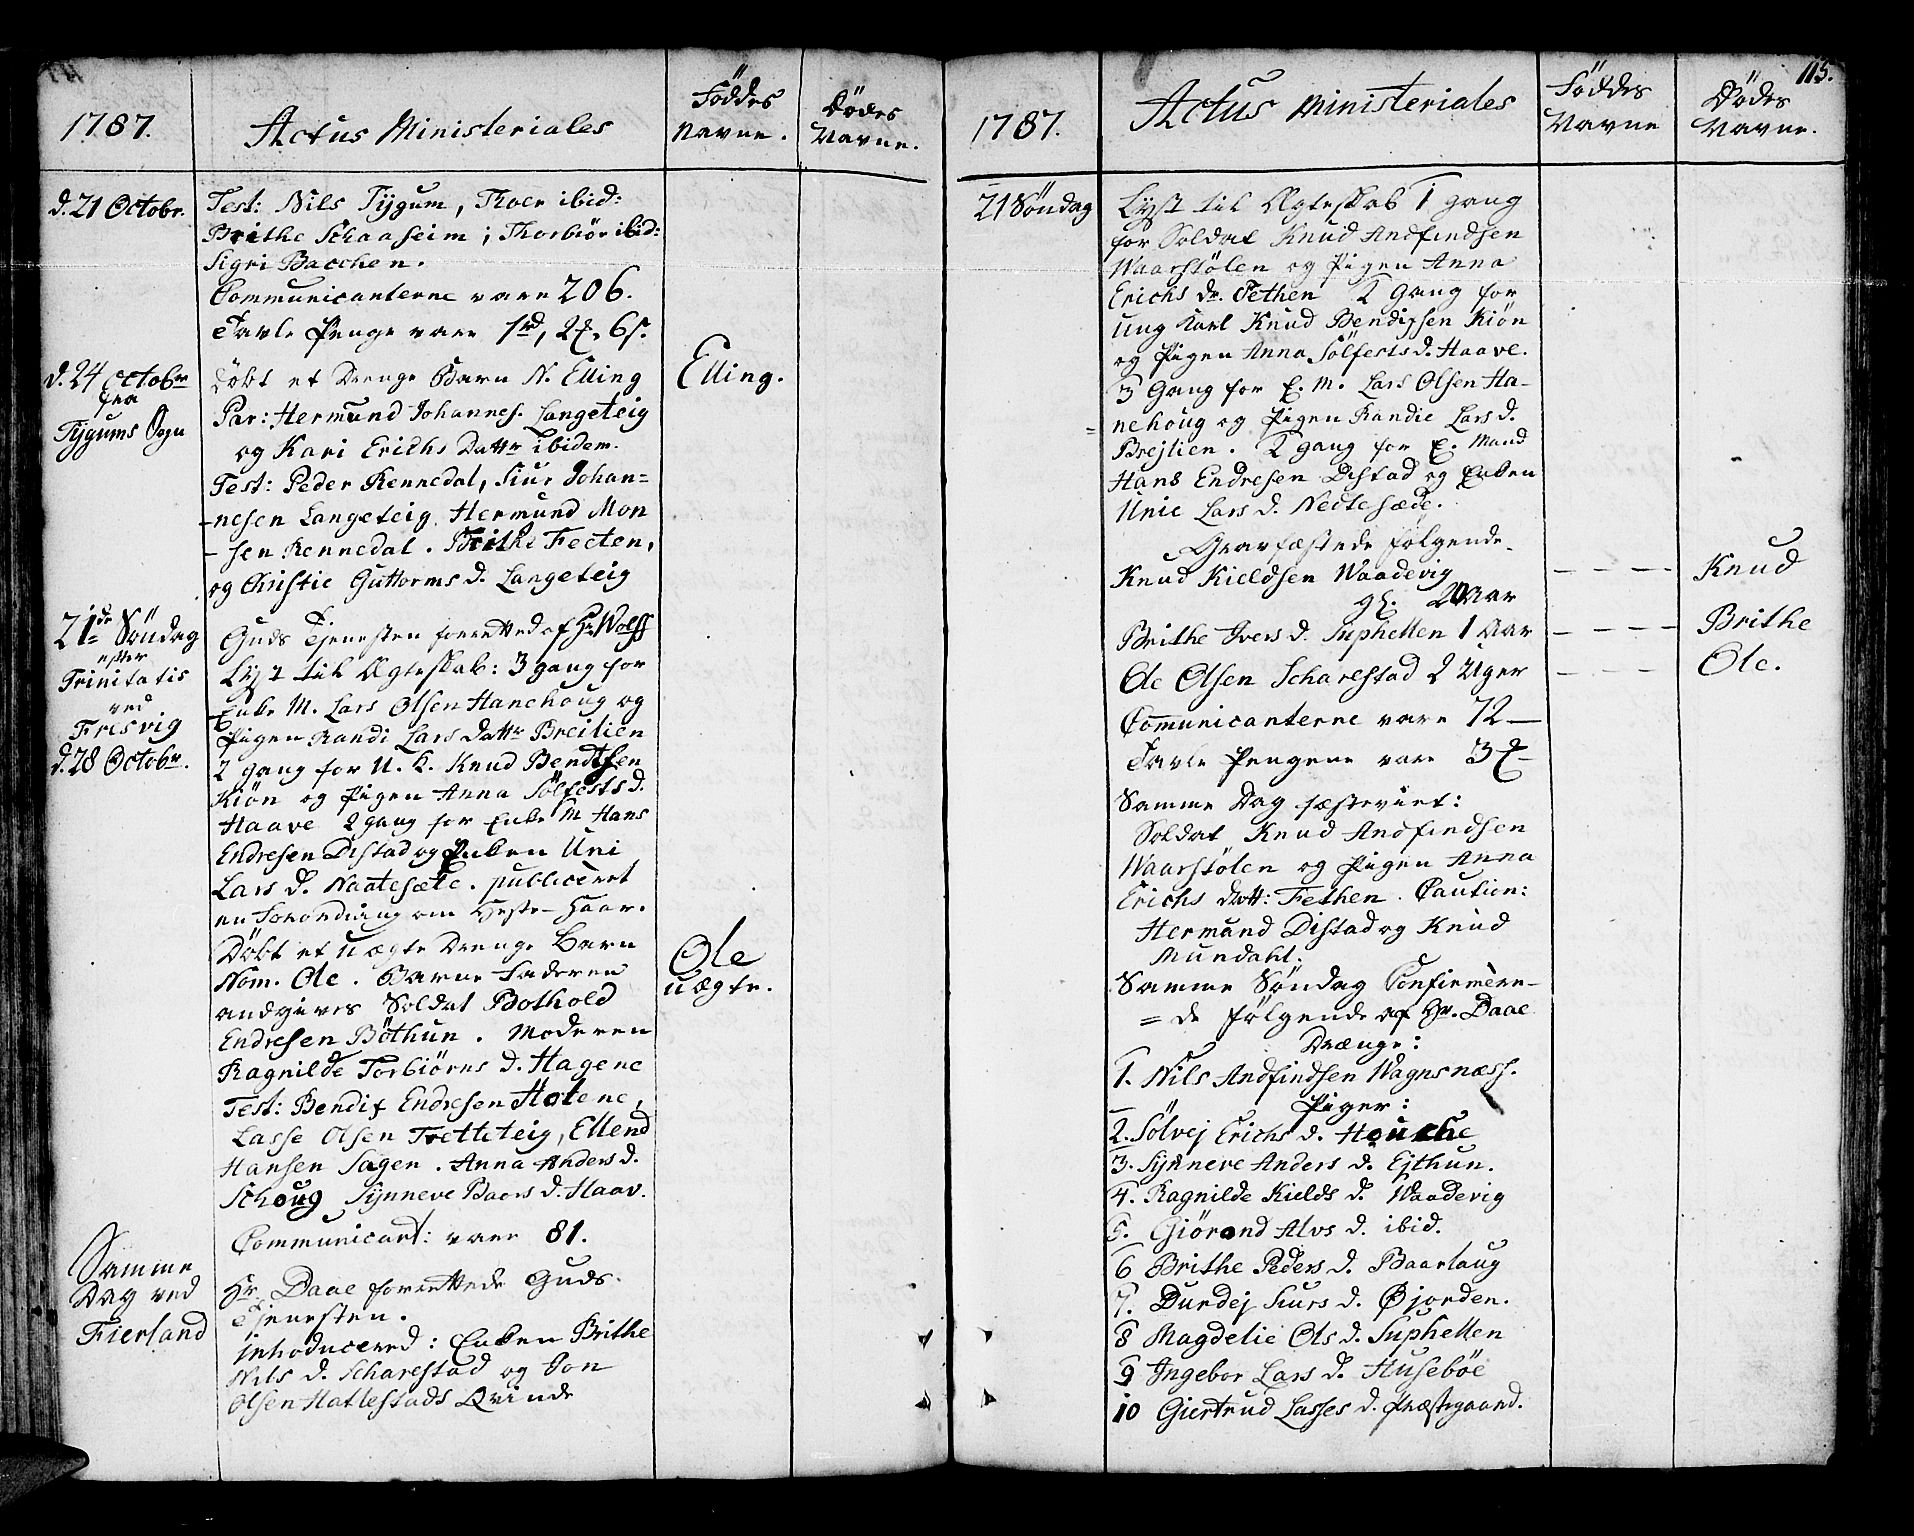 1787.
Actus Ministeriales
Föddes
Navne.
Dödes
Navne.
d. 21 Octobr.
Test: Nils Tygum, Thoer ibid:
Brithe Schaaseim; Thorbiör ibid:
Sigri Bacchen.
Communicanterne vare 206.
Tavle Penge vare 1 rd, 2 ȼ. 6 s.
d. 24 Octobr
fra
Tygums Sogn
Döbt et Drenge Barn N. Elling
Par: Hermund Johannes. Langeteig
og Kari Erichs Dattr ibidem.
Test: Peder Rennedal, Siur Johan=
-nesen Langeteig. Hermund Mon
-sen Rennedal. Brithe Feeten,
og Christie Guttorms d. Langeteig
Elling.
21de Söndag
efter
Trinitatis
ved
Fresvig
d. 28 Octobr.
Guds Tjenesten forretted af Hr. Wolff
Lyst til Ægteskab: 3 gang for
Enke M. Lars Olsen Hanehoug og
Pigen Randi Lars Dattr Breilien
2 gang for U. K. Knud Bendixsen
Kiön og Pigen Anna Sölfests d.
Haave 2 gang for Enke M Hans
Endresen Distad og Enken Uni
Lars d. Naatesæte. publiceret
en Forordning om Heste-Haar.
Döbt et uægte Drenge Barn
Nom. Ole. Barne Faderen
andgives Soldat Bothold
Endresen Böthun. Moderen
Ragnilde Torbiörns d. Hagene
Test: Bendix Endresen Hatene,
Lasse Olsen Tretteteig, Ellend
Hansen Sagen. Anna Anders d.
Schoug Synneve Baars d. Haav.
Communicant: vare 81.
Ole
uægte.
Samme
Dag ved
Fierland
Hr. Daae forrettede Guds
Tjenesten.
introducered: Enken Brithe
Nils d. Scharestad og Jon
Olsen Hatlestads Qvinde
115.
1787.
Actus Ministeriales
Föddes
Navne
Dödes
Navne.
21 Söndag
Lyst til Ægteskab 1 gang
for Soldat Knud Andfindsen
Waarstölen og Pigen Anna
Erichs dr. Fethen 2 Gang for
Ung Karl Knud Bendixsen Kiön
og Pigen Anna Sölfests d. Haave.
3 Gang for E. M. Lars Olsen Ha-
nehoug og Pigen Randie Lars d.
Brejlien. 2 gang for E. Mand
Hans Endresen Distad og Enken
Unie Lars d. Nedtesæde.
Gravfæstede fölgende
Knud Kieldsen Waadevig
gl. 20 Aar
Knud
Brithe Ivers d. Suphellen 1 Aar
Brithe
Ole Olsen Scharestad 2 Uger
Ole.
Comunicanterne vare 72
Tavle Pengene vare 3 ȼ
Samme Dag fæsteviet:
Soldat Knud Andfindsen
Waarstölen og Pigen Anna
Erichs datt: Fethen. Caution:
Hermund Distad og Knud
Mundahl.
Samme Söndag Confirmere-
= de fölgende af Hr. Daae
Drænge:
1. Nils Andfindsen Wagnsnæss.
Piger:
2. Sölvej Erichs d. Houche
3. Synneve Anders d. Ejthun.
4. Ragnilde Kields d. Waadevig
5. Giörond Alvs d. ibid.
6 Brithe Peders d. Baarlaug
7. Durdej Siurs d. Øjorden.
8 Magdelie Ols d. Suphellen
9 Ingebor Lars d. Huseböe
10 Giertrud Lasses d. Præstegaard.